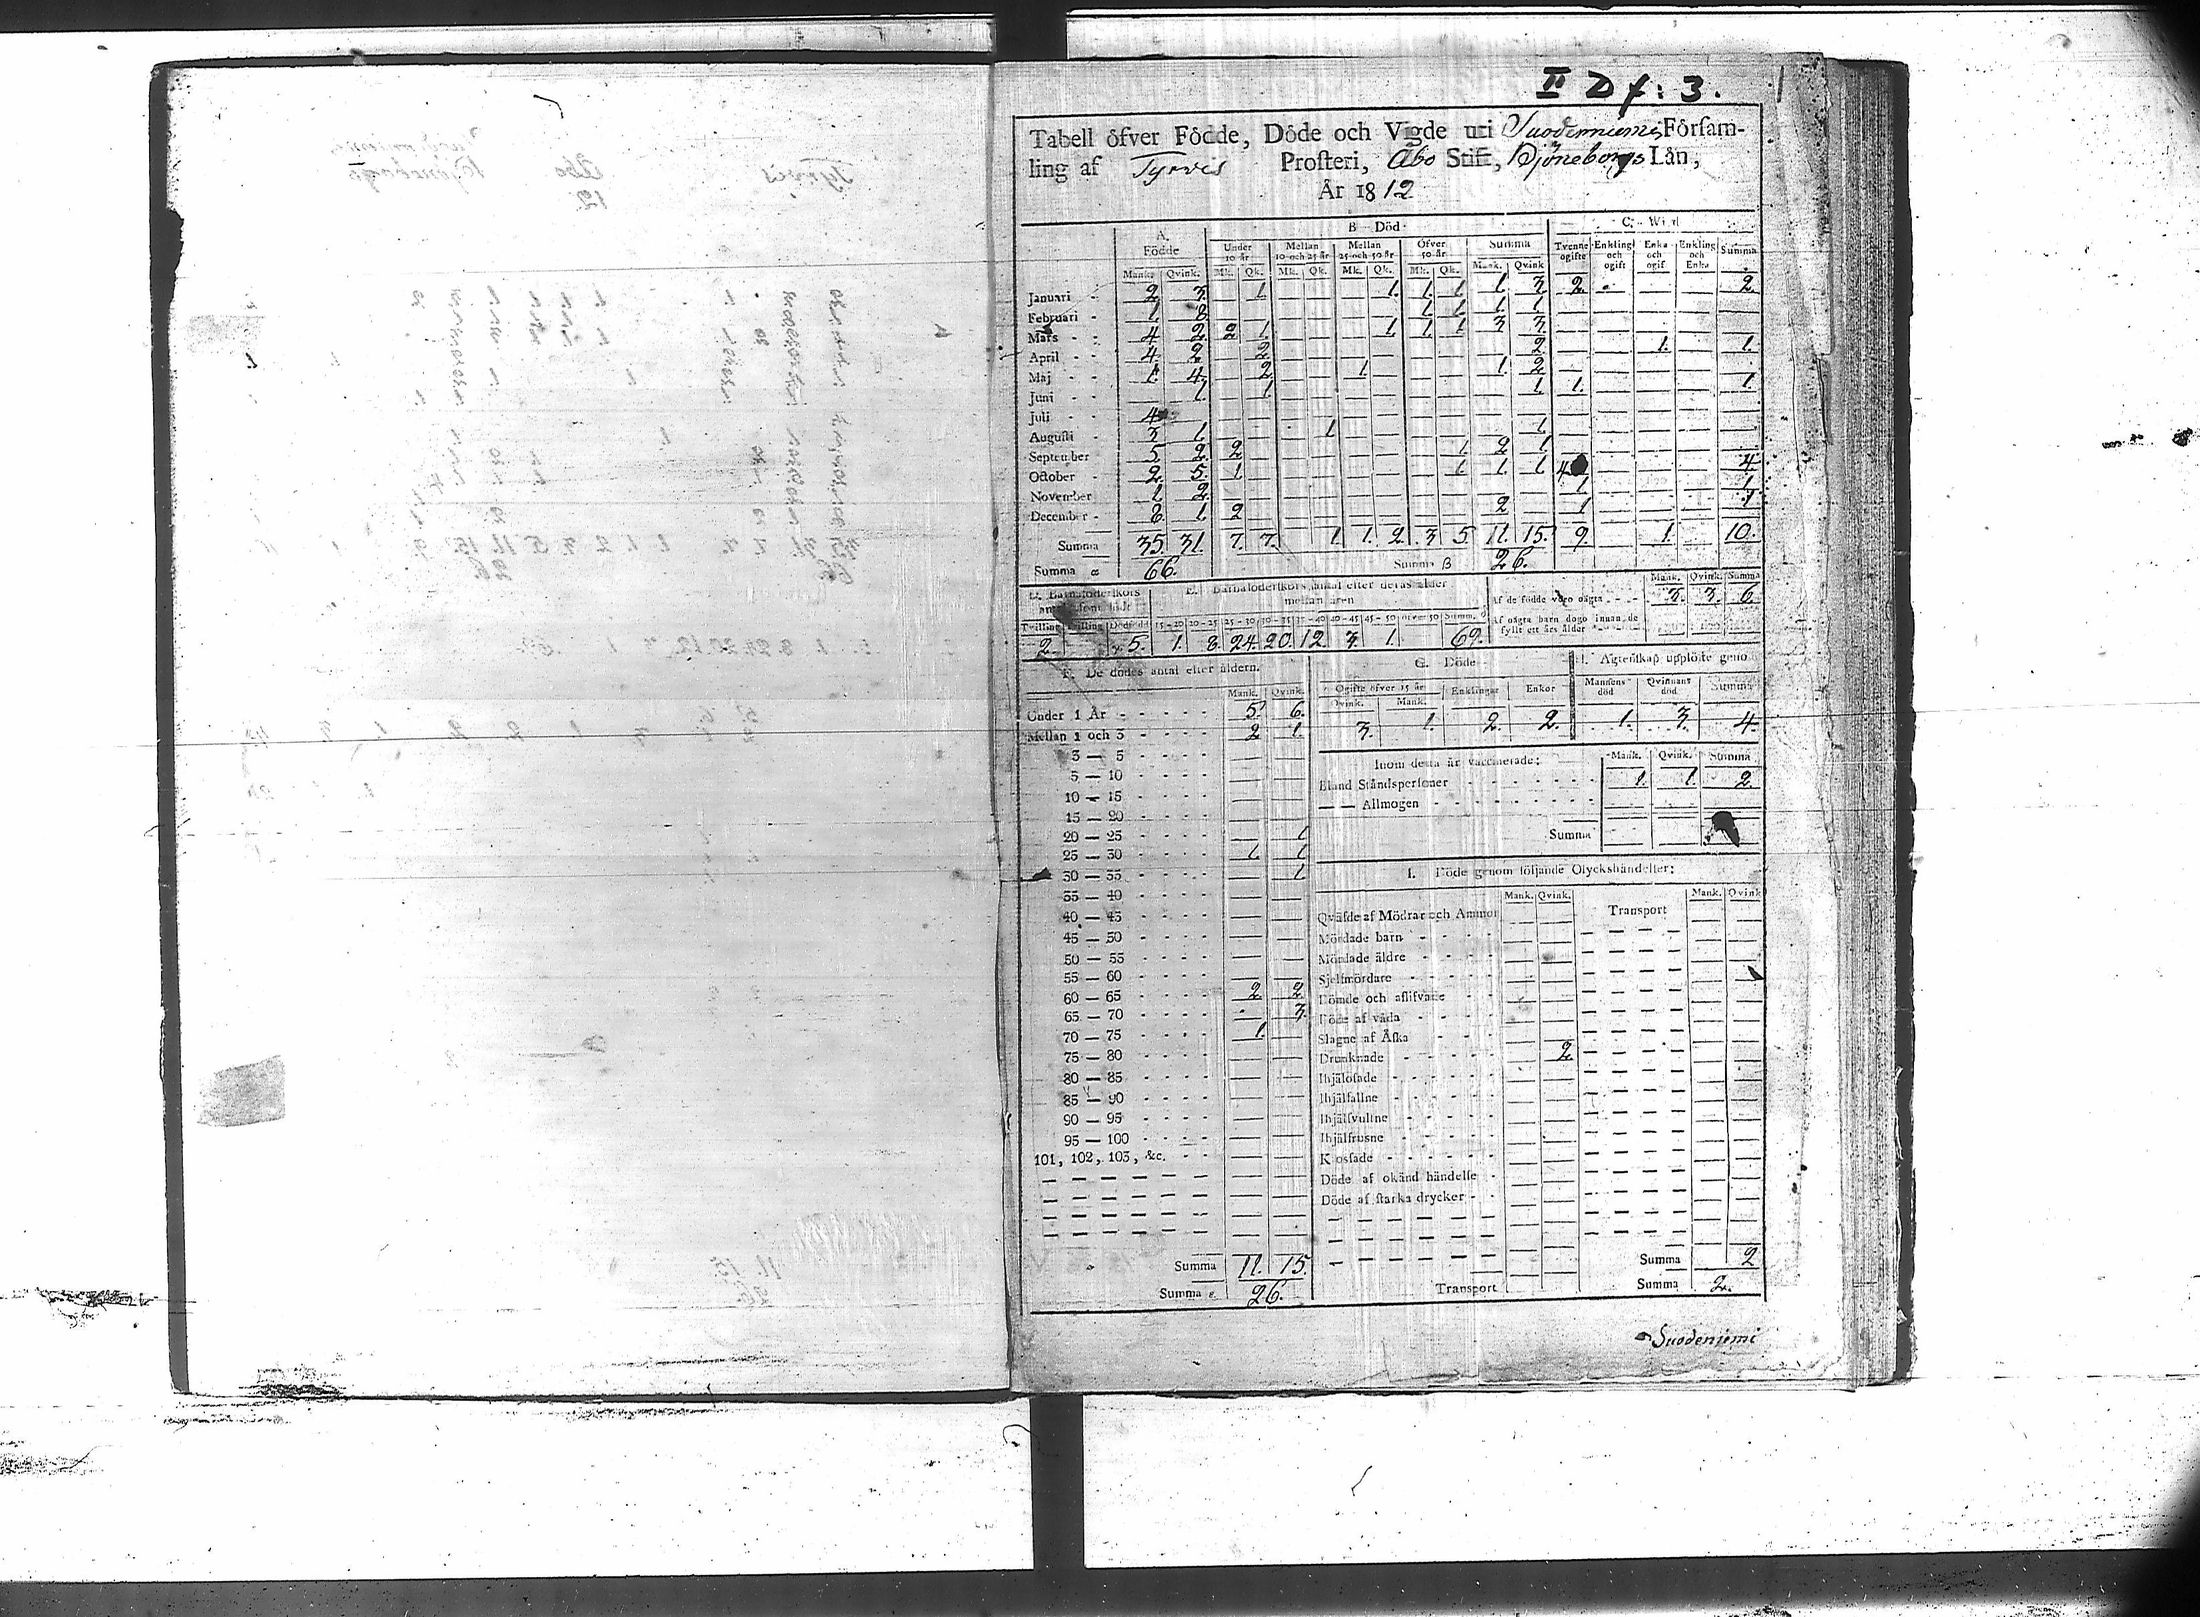 II D f: 3.
Tabell öfver Födde, Döde och Vigde uti Suodeniemi Försam-
ling af Tyrvis Prosteri, Åbo Stift, Björneborgs Län,
År 1812
A. Födde B Död C.
Under 10 år Mellan 10 och 25 år Mellan 25 och 50 år Öfver 50 år Summa Tvenne ogifte Enkling och ogift Enka och ogif Enkling och Enka Summa
Mank. Qvink. Mk. Qk. Mk. Qk. Mk. Qk. Mk. Qk. Mank. Qvink
Januari 2 3. 1. 1. 1. 1. 1. 3. 2. 2.
Februari 1. 8 1. 1. 1. 1.
Mars 4 2. 2 1. 1. 1. 1. 3 3.
April 4. 2. 2. 2. 1. 1.
Maj 1. 4. 2. 1. 1. 2.
Juni 1. 1. 1 1. 1.
Juli 4
Augusti 3 1. 1. 1.
September 5. 2. 2 1. 2 1.
October 2. 5. 1. 1. 1. 1. 4 4.
November 1. 2. 1 1.
December 8. 1. 2 2 1 1
Summa 35. 31. 7. 7. 1. 1. 2. 3 5 11. 15. 9. 1. 10.
Summa 66. Summa B 26.
D. Barnsföderskors E. Barnsföderskors antal efter deras ålder mellan åren
Mank. Qvink. Summa
Af de födde voro oägta 3. 3. 6.
Af oägta barn dogo innan de fyllt ett års ålder
Tvilling Trilling Dödfödd 15-20 20-25 25-30 30-35 35-40 40-45 45-50 öfver 50 Summa
2. 5. 1. 8. 24. 20. 12. 3. 1. 69.
F. De dödes antal efter åldern.
Mank. Qvink.
Under 1 År 5. 6.
Mellan 1 och 3 2 1.
3 — 5
5 — 10
10 — 15
15 — 20
20 — 25 1
25 — 30 1. 1
30 — 35 1
35 — 40
40 — 45
45 — 50
50 — 55
55 — 60
60 — 65 2 2
65 — 70 3.
70 — 75 1.
75 — 80
80 — 85
85 — 90
90 — 95
95 — 100
101, 102, 103, &c.
Summa 11. 15.
Summa 26.
G. Döde
Ogifte öfver 15 år Enklingar Enkor
Qvink. Mank.
3. 1. 2. 2.
Ägtenskap upplöste geno
Mannens död Qvinnans död Summa
1. 3. 4.
Inom detta år vaccinerade: Mank. Qvink. Summa
Bland Ståndspersoner 1. 1. 2.
— — Allmogen
Summa
I. Döde genom följande Olyckshändelser:
Mank. Qvink. Mank. Qvink
Qväfde af Mödrar och Ammor Transport
Mördade barn
Mördade äldre
Sjelfmördare
Dömde och aflifvade
Döde af våda
Slagne af Åska
Drunknade 2.
Ihjälosade
Ihjälfallne
Ihjälsvultne
Ihjälfrusne
Krossade
Döde af okänd händelse
Döde af starka drycker
Summa 2
Transport Summa 2.
Suodenjemi